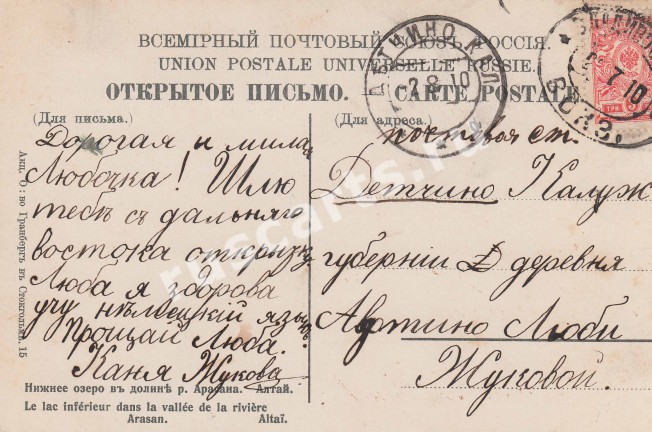 ВСЕМІРНЫЙ ПОЧТОВЫЙ СОЮЗЪ. РОССІЯ.
UNION POSTALE UNIVERSELLE RUSSIE.
ОТКРЫТОЕ ПИСЬМО. CARTE POSTALE
(Для письма.)
Дорогая и мила
Любочка! Шлю
тебѣ съ дальняго
востока открытку
Люба я здорова
учу нѣмецкій языкъ.
Прощай Люба.
Каня Жукова
(Для адреса.)
почтовая ст.
Детчино Калуж
губерніи Д деревня
Авотино Люби
Жуковой.
Нижнее озеро въ долинѣ р. Арасана. Алтай.
Le lac inférieur dans la vallée de la rivière
Arasan. Altaï.
Акц. О-во Гранбергъ въ Стокгольмѣ. 15
ДЕТЧИНО КАЛ
2 8 10
7 10
ВОКЗ.
ТРИ
ruscarts.ru